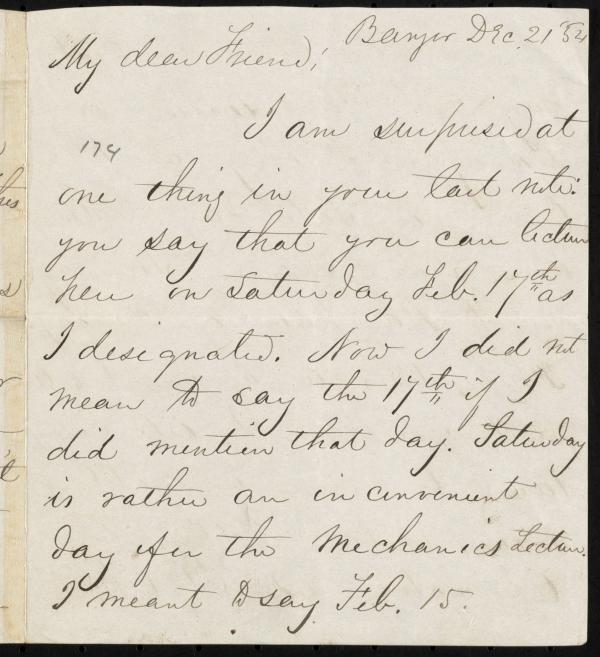 Bangor Dec. 21 '54
My dear Friend;
I am surprised at
174
one thing in your last note:
you say that you can lecture
here on Saturday Feb. 17th as
I designated. Now I did not
mean to say the 17th if I
did mention that day. Saturday
is rather an inconvenient
day for the Mechanics Lecture.
I meant to say Feb. 15.